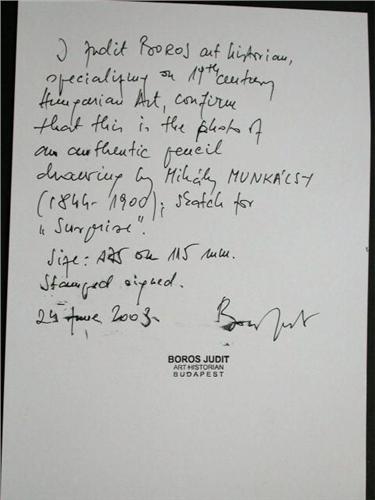 I Judit BOROS art historian,
specializing on 19th century
Hungarian Art, confirm
that this is the photo of
an authentic pencil
drawing by Mihály MUNKÁCSY
(1844-1900); sketch for
„Surprise".
Size: 175 on 115 mm.
Stamped signed.
24 June 2003.
BOROS JUDIT
ART HISTORIAN
BUDAPEST